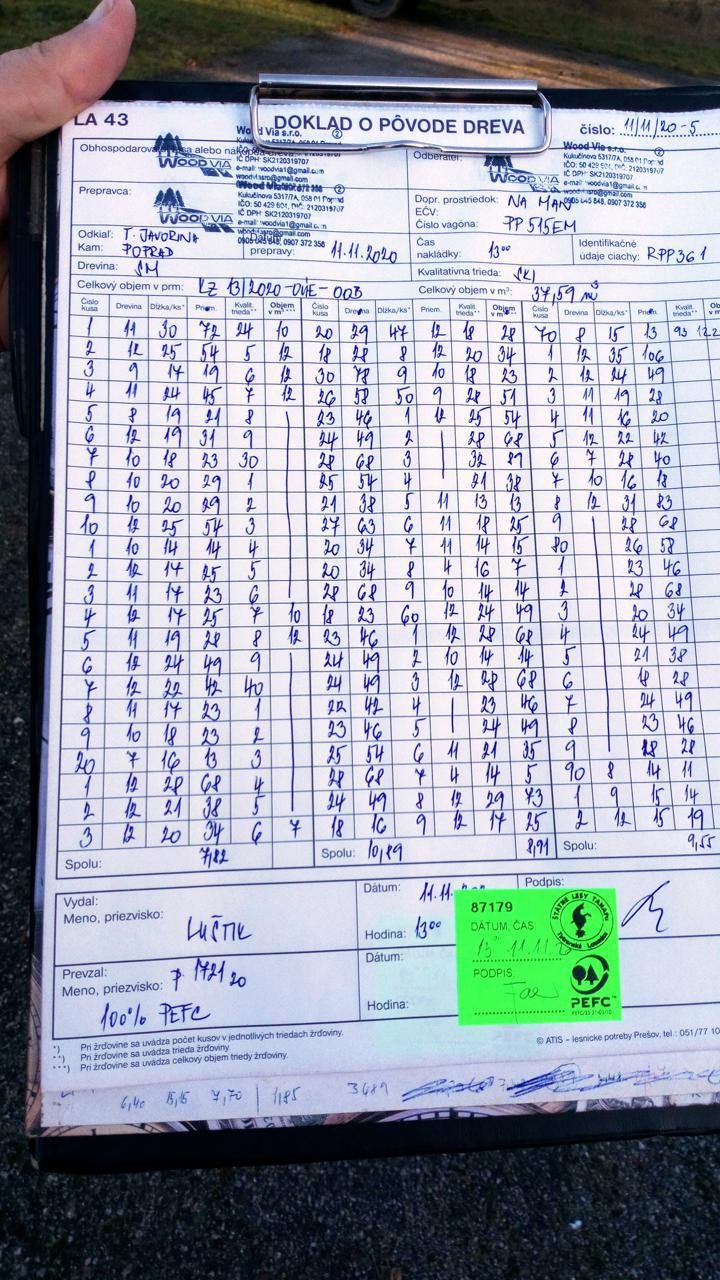 LA 43
DOKLAD O PÔVODE DREVA
číslo: 11/11/20-5
Wood Via s.r.o.
Kukučínova 5317/A, 058 01 Poprad
IČ DPH: SK2120319707
e-mail: woodvia1@gmail.com
WOOD VIA
Odberateľ:
Wood Via s.r.o.
Kukučínova 5317/A, 058 01 Poprad
IČ DPH: SK2120319707
e-mail: woodvia1@gmail.com
WOOD VIA
Prepravca:
Wood Via s.r.o.
Kukučínova 5317/A, 058 01 Poprad
IČ DPH: SK2120319707
e-mail: woodvia1@gmail.com
0905 645 848, 0907 372 358
WOOD VIA
Dopr. prostriedok: NA MAN
EČV:
Číslo vagóna: PP 515EM
Odkiaľ: T. JAVORINA
Kam: POPRAD
prepravy: 11.11.2020
Čas
nakládky: 13⁰⁰
Identifikačné
údaje ciachy: RPP361
Drevina: SM
Kvalitatívna trieda:
Celkový objem v prm: KZ 13/2020-OVE-OOB
Celkový objem v m³: 37,59 m³
Číslo kusa Drevina Dĺžka/ks* Priem. Kvalit. trieda** Objem v m³*** Číslo kusa Drevina Dĺžka/ks* Priem. Kvalit. trieda** Objem v m³*** Číslo kusa Drevina Dĺžka/ks* Priem. Kvalit. trieda**
1 11 30 72 24 10 20 29 47 12 18 28 70 8 15 13 93 12 2
2 12 25 54 5 12 18 28 8 12 20 34 1 12 35 106
3 9 17 19 6 12 30 78 9 10 18 23 2 12 24 49
4 11 24 45 7 12 26 58 50 9 28 51 3 11 19 28
5 8 19 21 8 23 46 1 12 25 54 4 11 16 20
6 12 19 31 9 24 49 2 28 68 5 12 22 42
7 10 18 23 30 28 68 3 32 89 6 7 28 40
8 10 20 29 1 25 54 4 21 38 7 10 16 18
9 10 20 29 2 21 38 5 11 13 13 8 12 31 83
10 12 25 54 3 27 63 6 11 18 25 9 28 68
1 10 14 14 4 20 34 7 11 14 15 80 26 58
2 12 17 25 5 20 34 8 4 16 7 1 23 46
3 11 17 23 6 28 68 9 10 14 14 2 28 68
4 12 17 25 7 10 18 23 60 12 24 49 3 20 34
5 11 19 28 8 12 23 46 1 12 28 68 4 24 49
6 12 24 49 9 24 49 2 10 14 14 5 21 38
7 12 22 42 40 24 49 3 12 28 68 6 18 28
8 11 17 23 1 22 42 4 23 46 7 24 49
9 10 18 23 2 23 46 5 24 49 8 23 46
20 7 16 13 3 25 54 6 11 21 35 9 28
1 12 28 68 4 28 68 7 4 14 5 90 8 14 11
2 12 21 38 5 24 49 8 12 29 73 1 9 15 14
3 12 20 34 6 7 18 16 9 12 17 25 2 12 15 19
Spolu: 7,82 Spolu: 10,89 8,91 Spolu: 9,55
Vydal:
Meno, priezvisko: LUŠTIK
Dátum: 11.11.
Hodina: 13⁰⁰
Podpis:
Prevzal:
Meno, priezvisko: P 1721 20
100% PEFC
Dátum:
Hodina:
87179
DÁTUM, ČAS:
13 11.11.
PODPIS:
ŠTÁTNE LESY TANAPu
Tatranská Lomnica
PEFC
*) Pri žrďovine sa uvádza počet kusov v jednotlivých triedach žrďoviny.
**) Pri žrďovine sa uvádza trieda žrďoviny.
***) Pri žrďovine sa uvádza celkový objem triedy žrďoviny.
© ATIS – lesnícke potreby Prešov, tel.: 051/77 10
6,40 15,15 7,70 1,85 3489